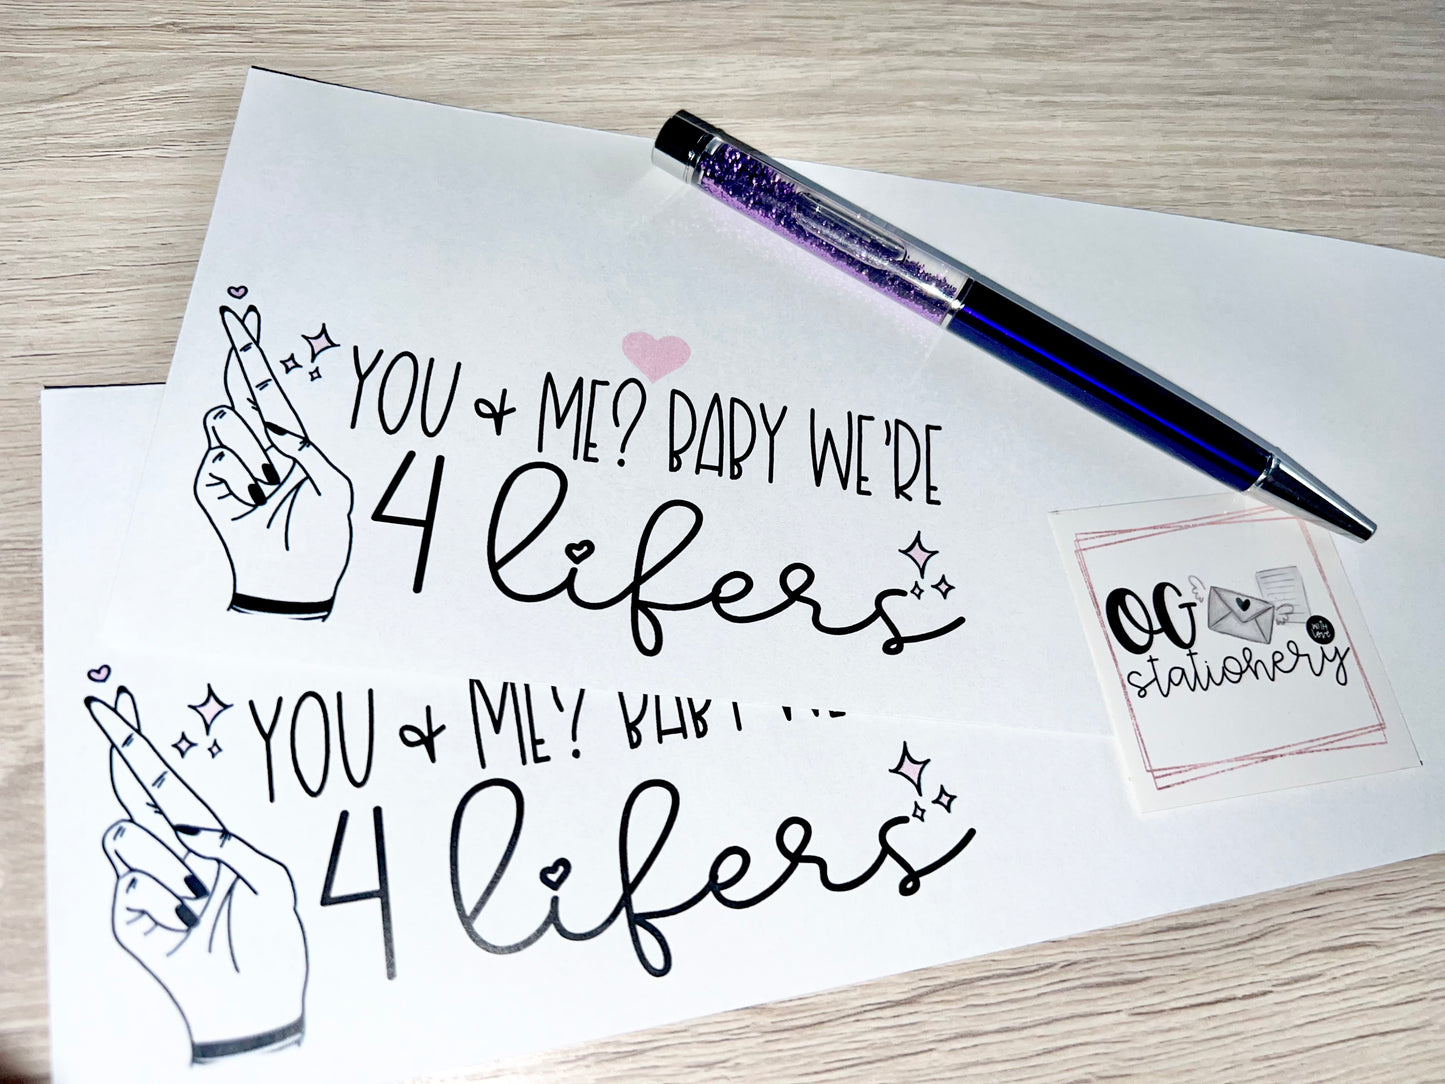 YOU & ME? BABY WE'RE
4 lifers
YOU & ME? BABY
4 lifers
OG
with love
stationery